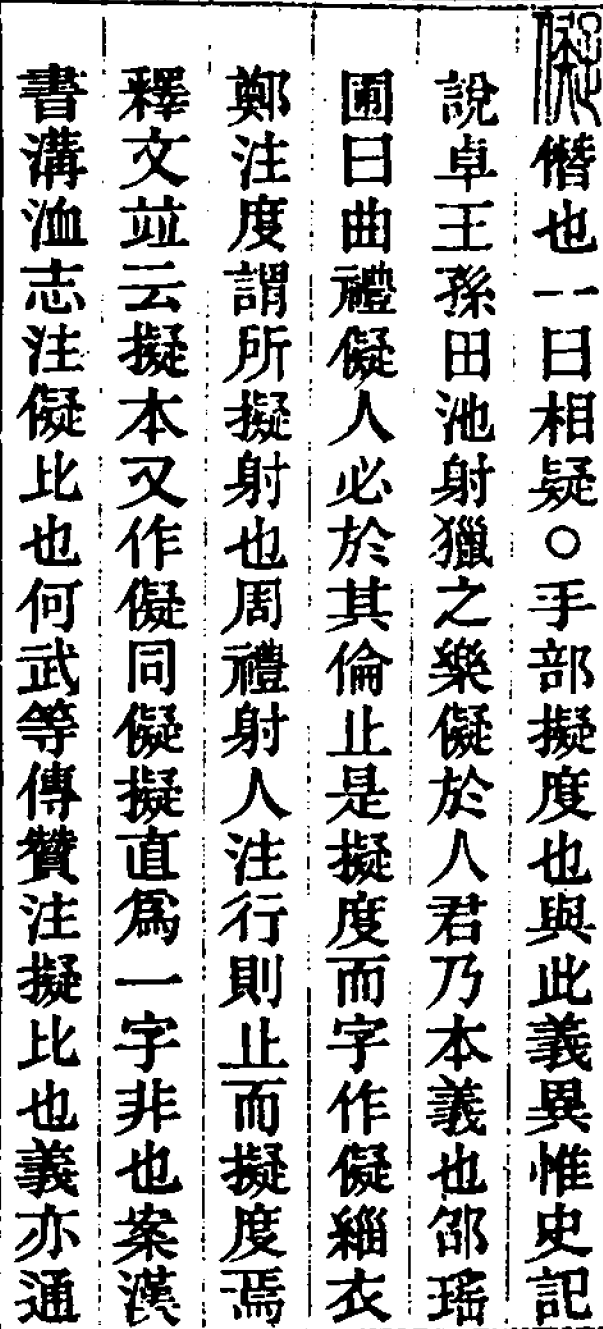 儗僭也一曰相疑○手部擬度也與此義異惟史記
說卓王孫田池射獵之樂儗於人君乃本義也邵瑤
圃曰曲禮儗人必於其倫止是擬度而字作儗緇衣
鄭注度謂所擬射也周禮射人注行則止而擬度焉
釋文竝云擬本又作儗同儗擬直爲一字非也案漢
書溝洫志注儗比也何武等傳贊注擬比也義亦通